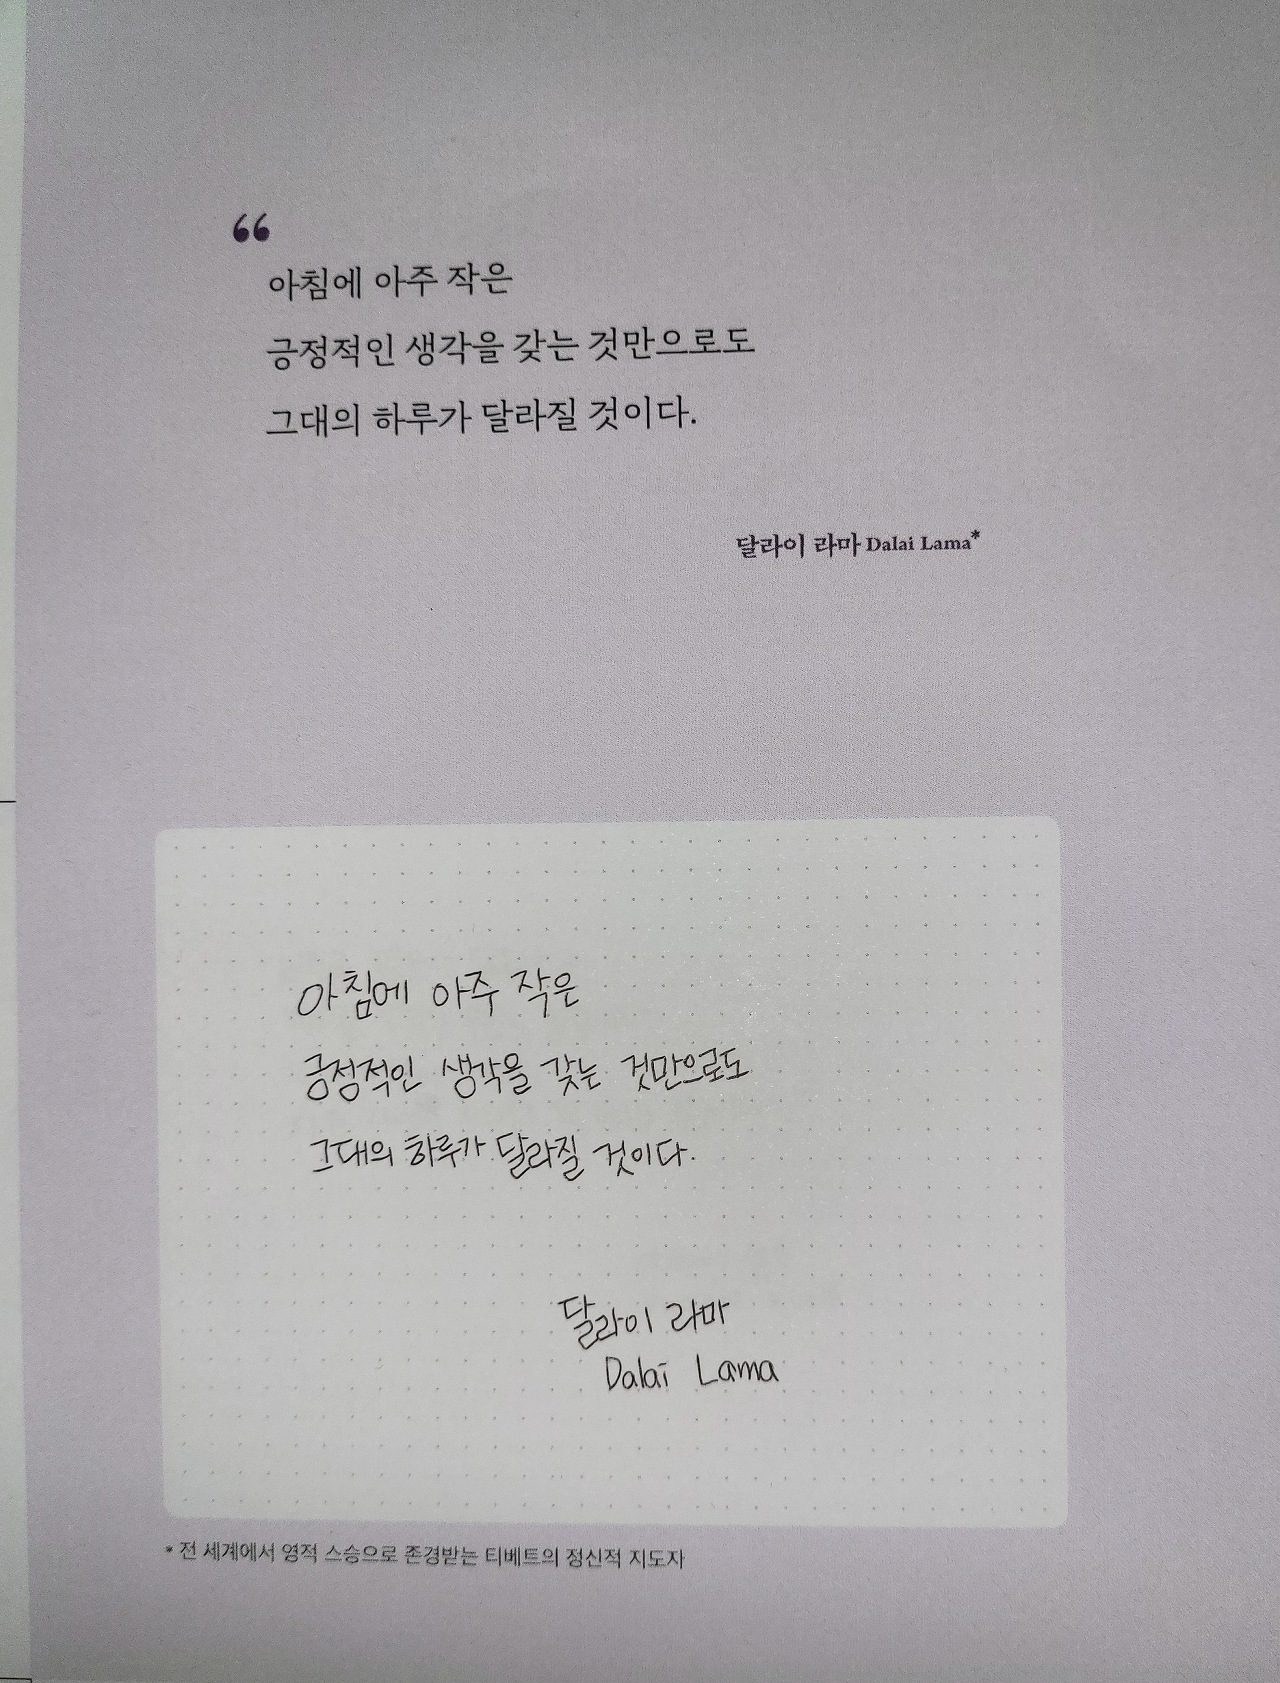 “
아침에 아주 작은
긍정적인 생각을 갖는 것만으로도
그대의 하루가 달라질 것이다.
달라이 라마 Dalai Lama*
아침에 아주 작은
긍정적인 생각을 갖는 것만으로도
그대의 하루가 달라질 것이다.
달라이 라마
Dalai Lama
* 전 세계에서 영적 스승으로 존경받는 티베트의 정신적 지도자